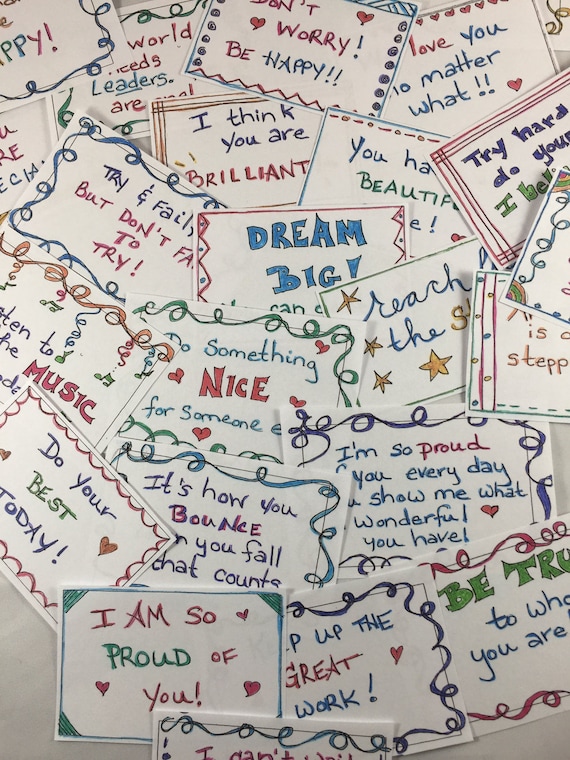 HAPPY!
world
Leaders.
DON'T
WORRY!
BE HAPPY!!
love you
no matter
what!!
I think
you are
BRILLIANT
You ha
BEAUTIF
e!
Try hard
do you
I be
TRY & Fail,
BUT DON'T FA
TO
TRY!
DREAM
BIG!
reach
the S
is a
stepp
ten to
he
MUSIC
Do Something
NICE
for Someone e
I'm so proud
you every day
u show me what
wonderful
you have!
Do your
BEST
TODAY!
It's how you
BOUNCE
n you fall
that counts
BE TRU
to who
you are!
I AM SO
PROUD OF
YOU!
P UP THE
GREAT
WORK!
I can't